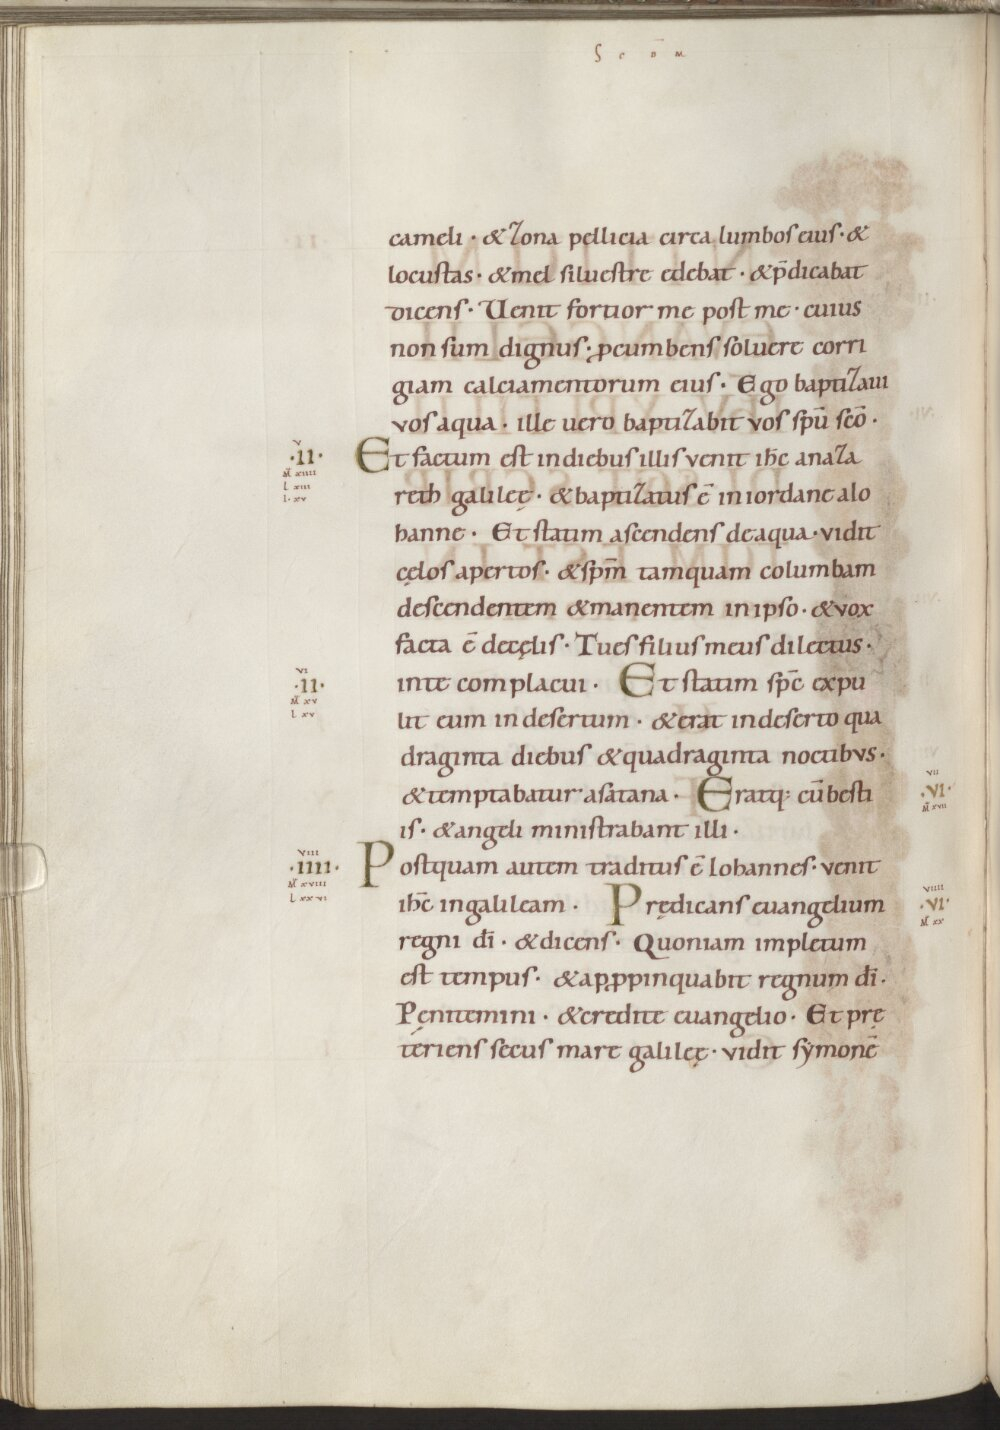 Scdm̄
cameli · & zona pellicia circa lumbos eius · &
locustas · & mel siluestre edebat · & p̄dicabat
dicens · Uenit fortior me post me · cuius
non sum dignus · ꝓcumbens soluere corri
giam calciamentorum eius · Ego baptizaui
vos aqua · ille uero baptizabit vos spū scō ·
v
·II· Et factum est in diebus illis venit ihc̄ anaza
M̄ xiiii
L xiii
reth galileę · & baptizatus ē in iordane a Io
I · xv
hanne · Et statim ascendens de aqua · vidit
cęlos apertos · & spm̄ tamquam columbam
descendentem & manentem in ipso · & vox
facta ē de cęlis · Tu es filius meus dilectus ·
vi
·II· in te complacui · Et statim spc̄ expu
M̄ xv
L xv
lit eum in desertum · & erat in deserto qua
draginta diebus & quadraginta noctibvs ·
& temptabatur a satana · Eratq; cū besti
vii
·VI·
M̄ xvii
is · & angeli ministrabant illi ·
viii
·IIII· Postquam autem traditus ē Iohannes · venit
M̄ xviii
L xxvi
ihc̄ in galileam · Prędicans euangelium
viiii
·VI·
M̄ xx
regni dī · & dicens · Quoniam impletum
est tempus · & apꝓpinquabit regnum dī ·
Pęnitemini · & credite euangelio · Et prę
teriens secus mare galileę · vidit symonē